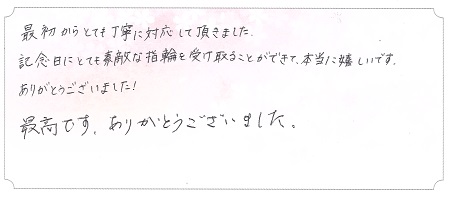 最初からとても丁寧に対応して頂きました.
記念日にとても素敵な指輪を受け取ることができて、本当に嬉しいです。
ありがとうございました!
最高です。ありがとうございました。